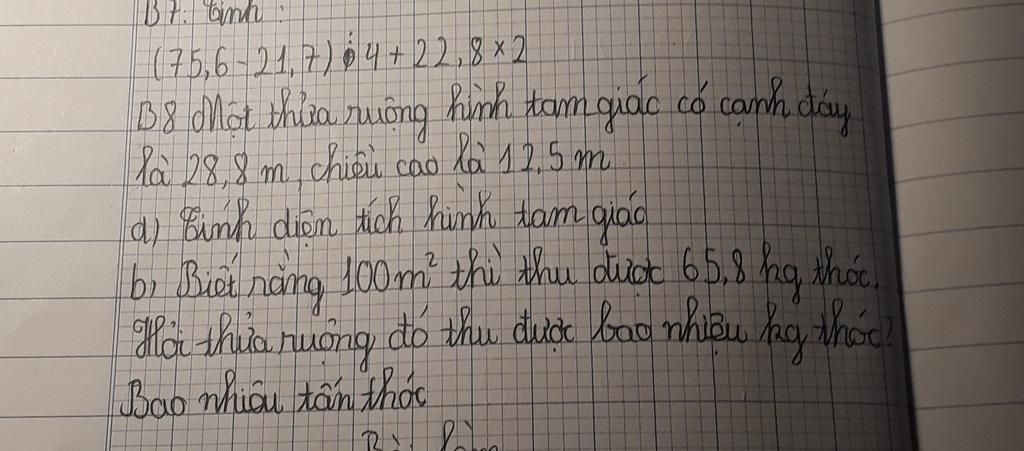 B7. Tính:
(75,6 - 21,7) : 4 + 22,8 × 2
B8 Một thửa ruộng hình tam giác có cạnh đáy
là 28,8 m, chiều cao là 12,5 m
a) Tính diện tích hình tam giác
b) Biết rằng 100m² thì thu được 65,8 kg thóc.
Hỏi thửa ruộng đó thu được bao nhiêu kg thóc?
Bao nhiêu tấn thóc